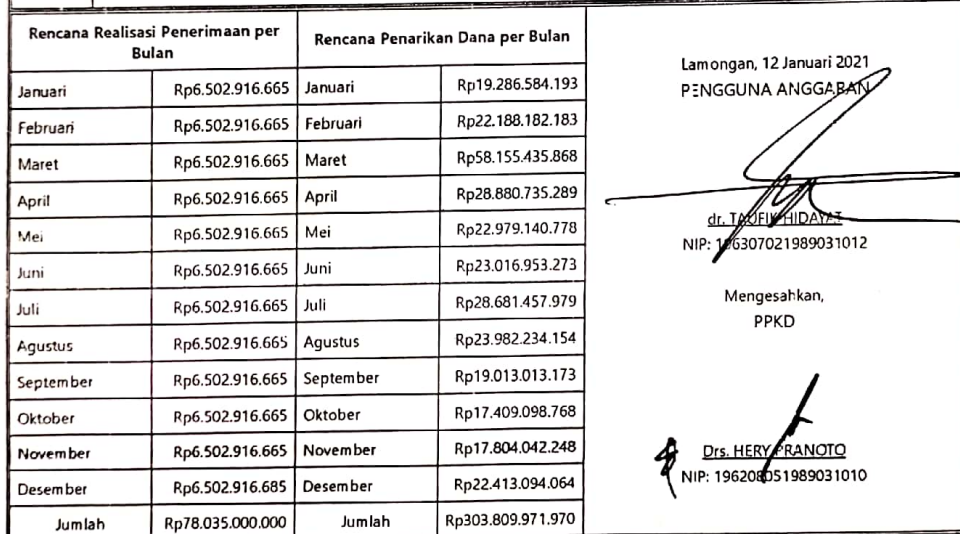 Rencana Realisasi Penerimaan per
Bulan
Rencana Penarikan Dana per Bulan
Januari Rp6.502.916.665 Januari Rp19.286.584.193
Februari Rp6.502.916.665 Februari Rp22.188.182.183
Maret Rp6.502.916.665 Maret Rp58.155.435.868
April Rp6.502.916.665 April Rp28.880.735.289
Mei Rp6.502.916.665 Mei Rp22.979.140.778
Juni Rp6.502.916.665 Juni Rp23.016.953.273
Juli Rp6.502.916.665 Juli Rp28.681.457.979
Agustus Rp6.502.916.665 Agustus Rp23.982.234.154
September Rp6.502.916.665 September Rp19.013.013.173
Oktober Rp6.502.916.665 Oktober Rp17.409.098.768
November Rp6.502.916.665 November Rp17.804.042.248
Desember Rp6.502.916.685 Desember Rp22.413.094.064
Jumlah Rp78.035.000.000 Jumlah Rp303.809.971.970
Lamongan, 12 Januari 2021
PENGGUNA ANGGARAN
dr. TAUFIK HIDAYAT
NIP: 196307021989031012
Mengesahkan,
PPKD
Drs. HERY PRANOTO
NIP: 196208051989031010